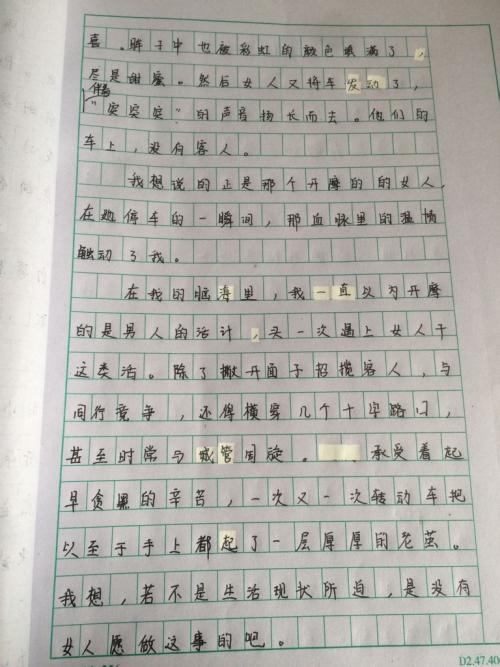 喜。眸子中也被彩虹的颜色填满了，
尽是甜蜜。然后女人又将车发动了，
伴着
“突突突”的声音扬长而去。他们的
车上，没有客人。
我想说的正是那个开摩的的女人，
在她停车的一瞬间，那血脉里的温情
触动了我。
在我的脑海里，我一直以为开摩
的是男人的活计，头一次遇上女人干
这类活。除了撇开面子招揽客人，与
同行竞争，还得横穿几个十字路口，
甚至时常与城管周旋。承受着起
早贪黑的辛苦，一次又一次转动车把
以至于手上都起了一层厚厚的老茧。
我想，若不是生活现状所迫，是没有
女人愿做这事的吧。
D2.47.40